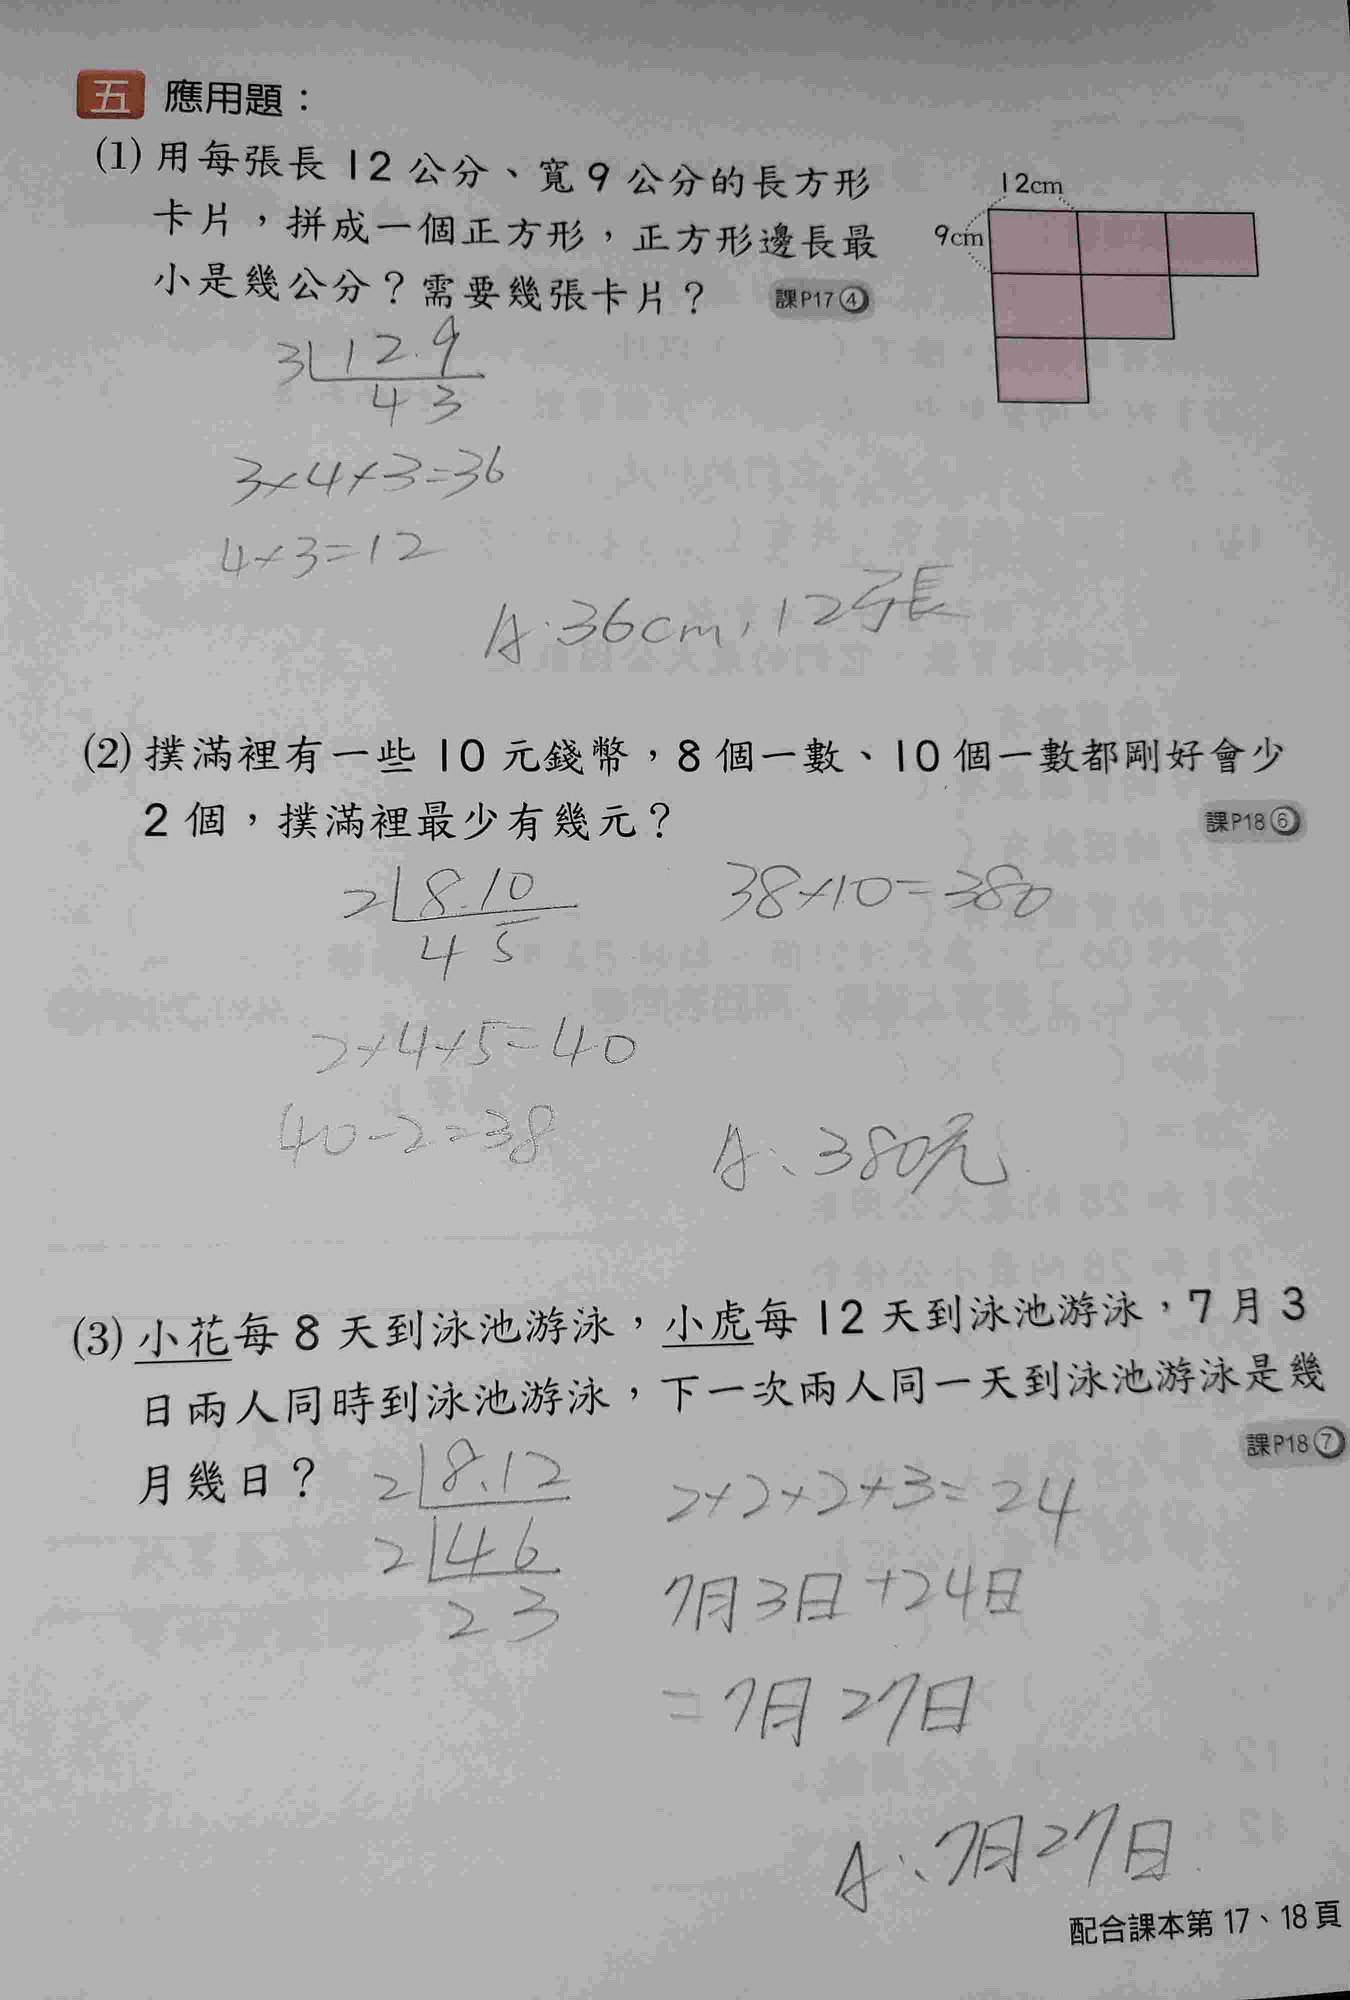 五 應用題：
(1) 用每張長 12 公分、寬 9 公分的長方形
卡片，拼成一個正方形，正方形邊長最
小是幾公分？需要幾張卡片？ 課P17④
12cm
9cm
3 12.9
4 3
3×4×3=36
4×3=12
A:36cm,12張
(2) 撲滿裡有一些 10 元錢幣，8 個一數、10 個一數都剛好會少
2 個，撲滿裡最少有幾元？ 課P18⑥
2 8.10
4 5
2×4×5=40
40-2=38
38×10=380
A:380元
(3) 小花每 8 天到泳池游泳，小虎每 12 天到泳池游泳，7 月 3
日兩人同時到泳池游泳，下一次兩人同一天到泳池游泳是幾
月幾日？ 課P18⑦
2 8.12
2 4 6
2 3
2×2×2×3=24
7月3日+24日
=7月27日
A:7月27日
配合課本第 17、18 頁